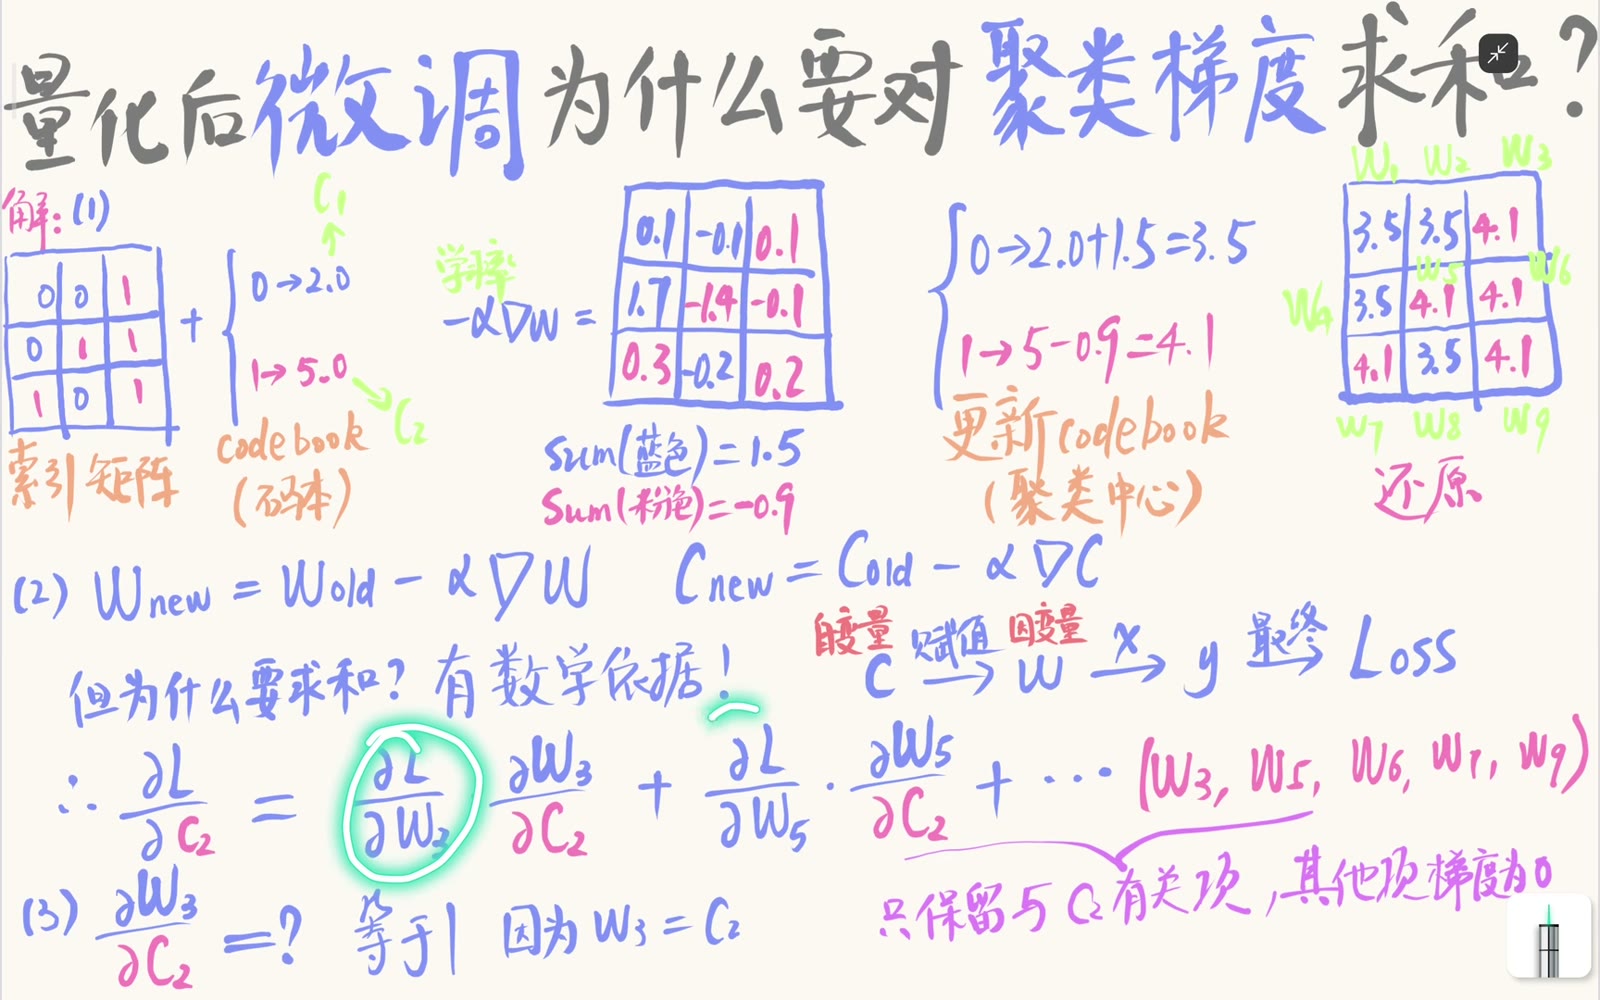 量化后微调为什么要对聚类梯度求和?
W1 W2 W3
解:(1)
C1
0 0 1
0 1 1
1 0 1
+
0→2.0
1→5.0
C2
索引矩阵
codebook
(码本)
学习率
-α∇W =
0.1 -0.1 0.1
1.7 -1.4 -0.1
0.3 -0.2 0.2
Sum(蓝色)=1.5
Sum(粉色)=-0.9
0→2.0+1.5=3.5
1→5-0.9=4.1
更新codebook
(聚类中心)
3.5 3.5 4.1
W4 W5 W6
3.5 4.1 4.1
4.1 3.5 4.1
W7 W8 W9
还原
(2) Wnew = Wold - α∇W Cnew = Cold - α∇C
但为什么要求和? 有数学依据!
自变量 赋值 因变量 x 最终
C → W → y → Loss
∴ ∂L/∂C2 = ∂L/∂W3 ∂W3/∂C2 + ∂L/∂W5 · ∂W5/∂C2 + ··· (W3, W5, W6, W7, W9)
只保留与C2有关项,其他项梯度为0
(3) ∂W3/∂C2 =? 等于1 因为 W3 = C2